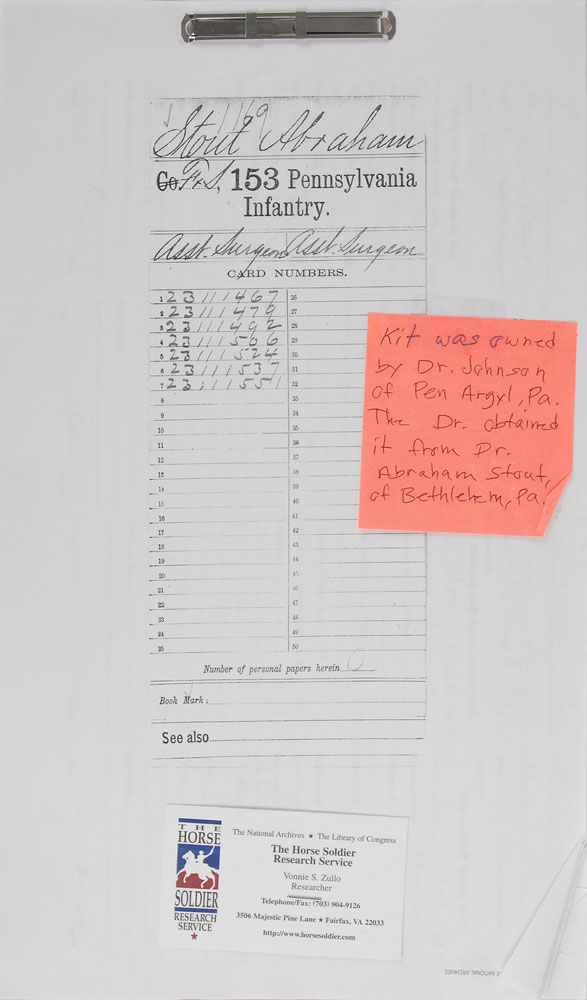 1149
Stout Abraham
Co F&S, 153 Pennsylvania
Infantry.
Asst. Surgeon Asst. Surgeon
CARD NUMBERS.
1 23111467 26
2 23111479 27
3 23111492 28
4 23111506 29
5 23111524 30
6 23111537 31
7 23111551 32
8 33
9 34
10 35
11 36
12 37
13 38
14 39
15 40
16 41
17 42
18 43
19 44
20 45
21 46
22 47
23 48
24 49
25 50
Number of personal papers herein 0
Book Mark:
See also
Kit was owned
by Dr. Johnson
of Pen Argyl, Pa.
The Dr. obtained
it from Dr.
Abraham Stout,
of Bethlehem, Pa.
THE
HORSE
SOLDIER
RESEARCH
SERVICE
The National Archives ★ The Library of Congress
The Horse Soldier
Research Service
Vonnie S. Zullo
Researcher
Telephone/Fax: (703) 904-9126
3506 Majestic Pine Lane ★ Fairfax, VA 22033
http://www.horsesoldier.com
E NATIONAL ARCHIVES